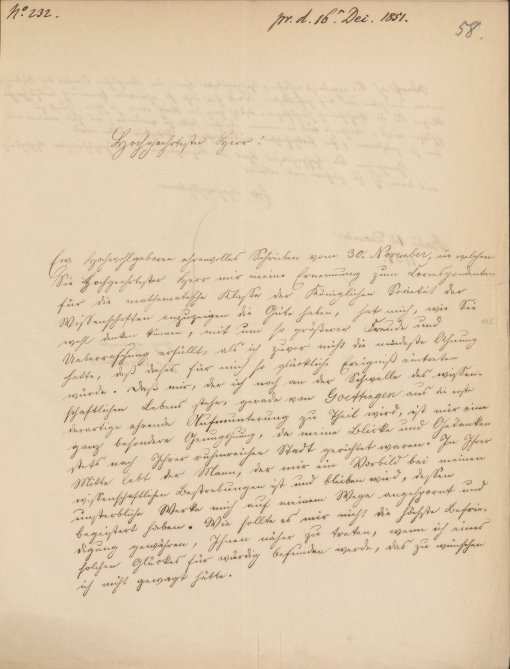 No 232.
pr. d. 16r Dec. 1851.
58.
Hochgeehrtester Herr!
Ew. Hochwohlgeboren ehrenvolles Schreiben vom 30. November, in welchem
Sie Hochgeehrtester Herr mir meine Ernennung zum Correspondenten
für die mathematische Klasse der Königlichen Societät der
Wissenschaften anzuzeigen die Güte hatten, hat mich, wie Sie
wohl denken können, mit um so größerer Freude und
Ueberraschung erfüllt, als ich zuvor nicht die mindeste Ahnung
hatte, daß dieses für mich so glückliche Ereigniß eintreten
würde. Daß mir, der ich noch an der Schwelle des wissen-
schaftlichen Lebens stehe, gerade von Goettingen aus die erste
derartige ehrende Aufmunterung zu Theil wird, ist mir eine
ganz besondere Genugthuung, da meine Blicke und Gedanken
stets nach Ihrer ruhmreichen Stadt gerichtet waren. In Ihrer
Mitte lebt der Mann, der mir ein Vorbild bei meinen
wissenschaftlichen Bestrebungen ist und bleiben wird, dessen
unsterbliche Werke mich auf meinem Wege angespornt und
begeistert haben. Wie sollte es mir nicht die höchste Befrie-
digung gewähren, Ihnen näher zu treten, wenn ich eines
solchen Glückes für würdig befunden werde, das zu wünschen
ich nicht gewagt hätte.